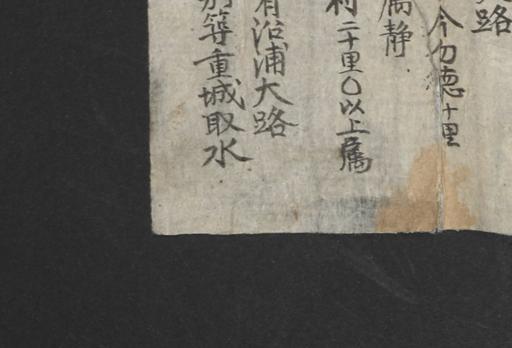 路
今勿德十里
属静
村二十里〇以上属
有沿浦大路
别等重城取水